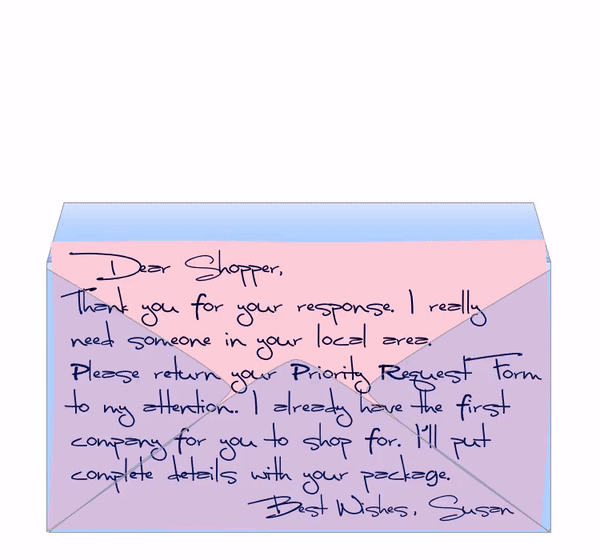 Dear Shopper,
Thank you for your response. I really
need someone in your local area.
Please return your Priority Request Form
to my attention. I already have the first
company for you to shop for. I'll put
complete details with your package.
Best Wishes, Susan